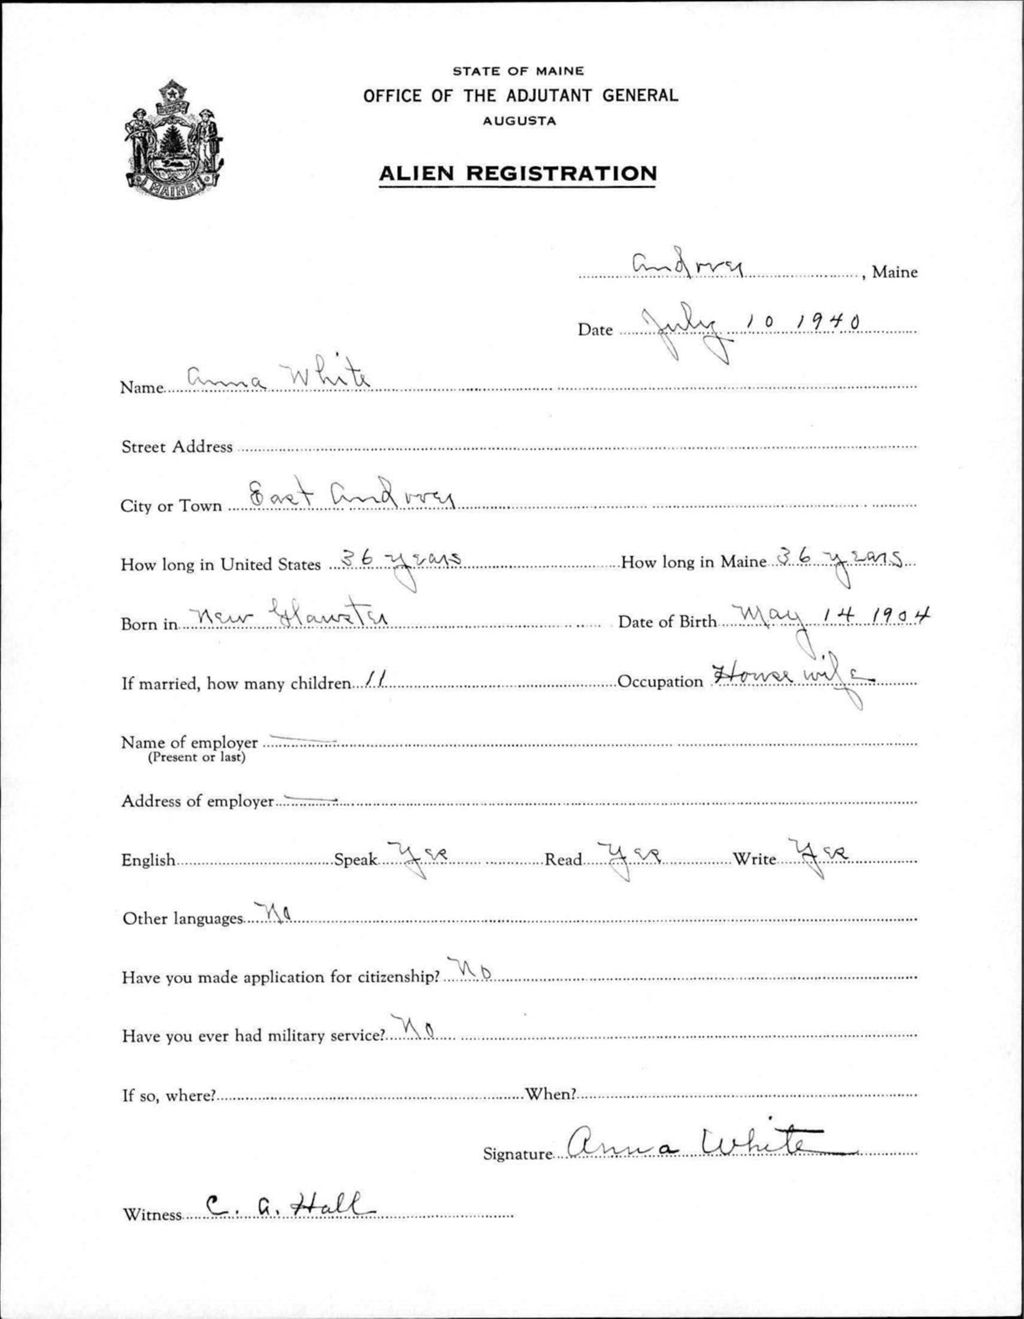 STATE OF MAINE
OFFICE OF THE ADJUTANT GENERAL
AUGUSTA
ALIEN REGISTRATION
MAINE
Andover, Maine
Date July 10 1940
Name Anna White
Street Address
City or Town East Andover
How long in United States 36 years How long in Maine 36 years
Born in New Glawster Date of Birth May 14 1904
If married, how many children 11 Occupation House wife
Name of employer —
(Present or last)
Address of employer —
English Speak Yes Read Yes Write Yes
Other languages No
Have you made application for citizenship? No
Have you ever had military service? No
If so, where? When?
Signature Anna White
Witness C. A. Hall